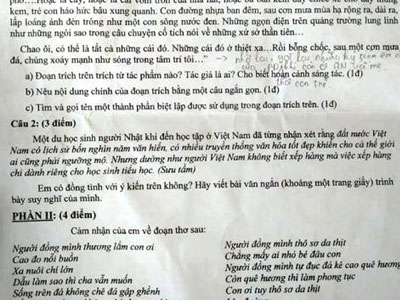 kem, trẻ con háo hức bâu xung quanh. Con đường nhựa ban đêm, sau cơn mưa hạ rộng ra, dài ra,
lấp loáng ánh đèn trông như một con sông nước đen. Những ngọn điện trên quảng trường lung linh
như những ngôi sao trong câu chuyện cổ tích nói về những xứ sở thần tiên…
Chao ôi, có thể là tất cả những cái đó. Những cái đó ở thiệt xa...Rồi bỗng chốc, sau một cơn mưa
đá, chúng xoáy mạnh như sóng trong tâm trí tôi…"
a) Đoạn trích trên trích từ tác phẩm nào? Tác giả là ai? Cho biết hoàn cảnh sáng tác. (1đ)
b) Nêu nội dung chính của đoạn trích bằng một câu ngắn gọn. (1đ)
c) Tìm và gọi tên một thành phần biệt lập được sử dụng trong đoạn trích trên. (1đ)
Câu 2: (3 điểm)
Một du học sinh người Nhật khi đến học tập ở Việt Nam đã từng nhận xét rằng đất nước Việt
Nam có lịch sử bốn nghìn năm văn hiến, có nhiều truyền thống văn hóa tốt đẹp khiến cho cả thế giới
ai cũng phải ngưỡng mộ. Nhưng dường như người Việt Nam không biết xếp hàng mà việc xếp hàng
chỉ dành riêng cho học sinh tiểu học. (Sưu tầm)
Em có đồng tình với ý kiến trên không? Hãy viết bài văn ngắn (khoảng một trang giấy) trình
bày suy nghĩ của mình.
PHẦN II: (4 điểm)
Cảm nhận của em về đoạn thơ sau:
Người đồng mình thương lắm con ơi
Cao đo nỗi buồn
Xa nuôi chí lớn
Dẫu làm sao thì cha vẫn muốn
Sống trên đá không chê đá gập ghềnh
Người đồng mình thô sơ da thịt
Chẳng mấy ai nhỏ bé đâu con
Người đồng mình tự đục đá kê cao quê hương
Còn quê hương thì làm phong tục
Con ơi tuy thô sơ da thịt